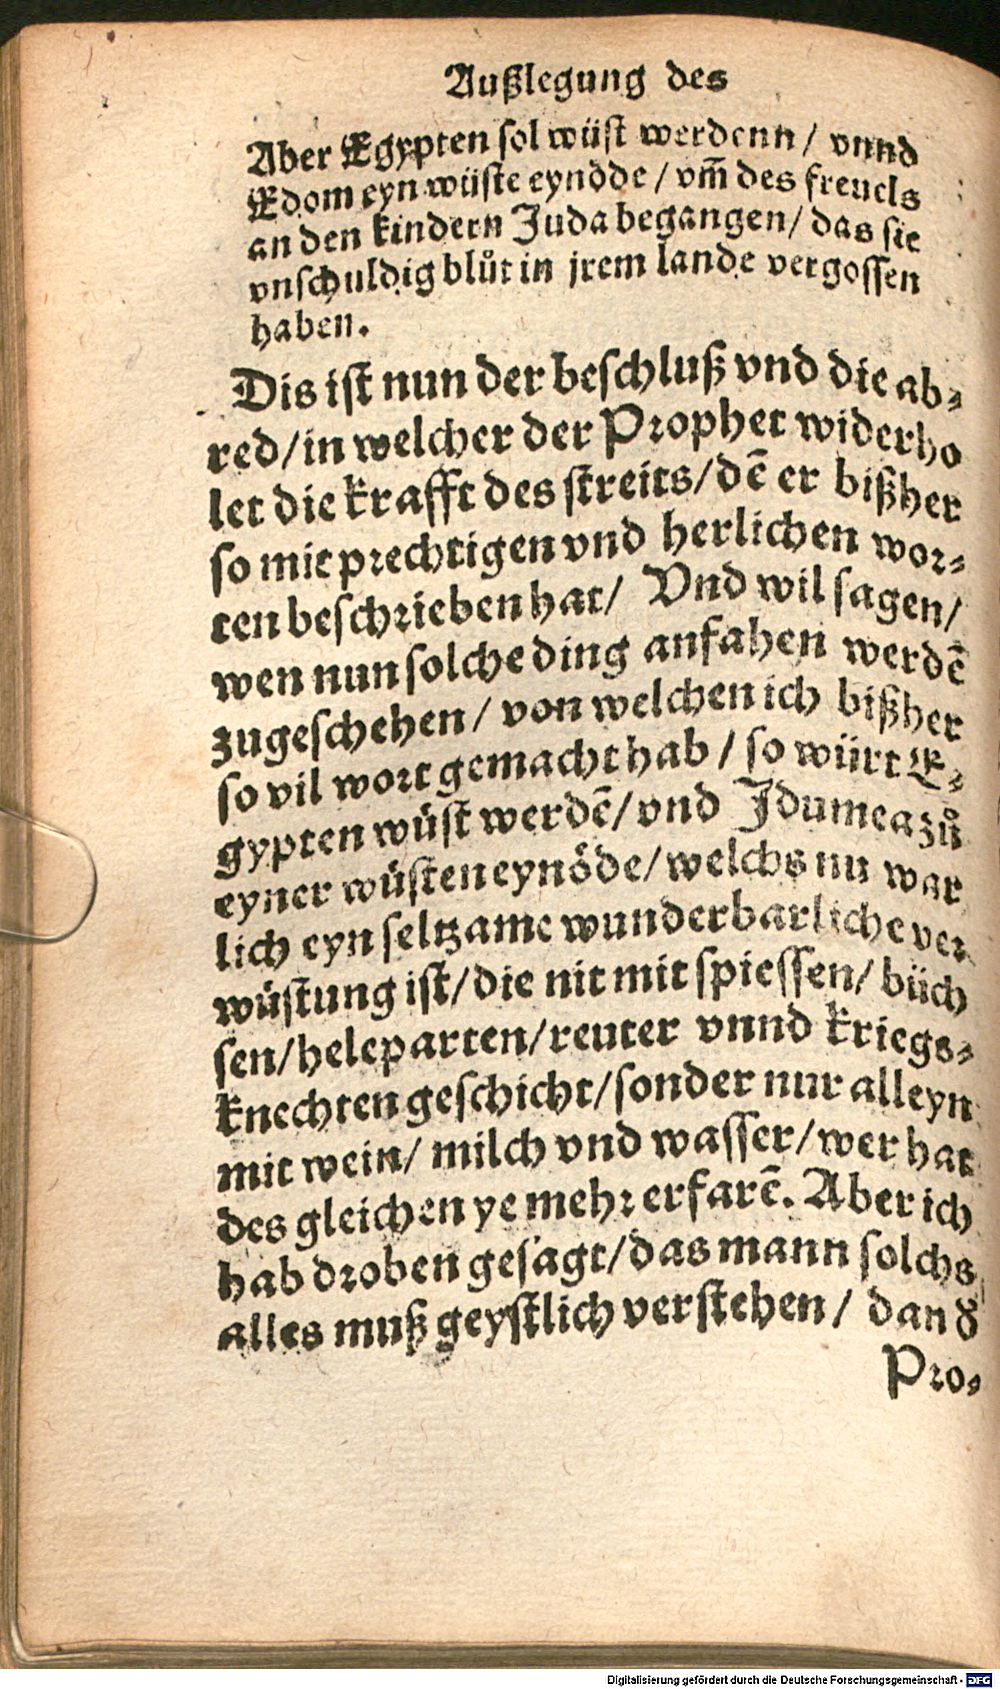 Außlegung des
Aber Egypten sol wüst werdenn / vnnd
Edom eyn wüste eynöde / vm̃ des freuels
an den kindern Juda begangen / das sie
vnschuldig blůt in jrem lande vergossen
haben.
Dis ist nun der beschluß vnd die ab⸗
red / in welcher der Prophet widerho
let die krafft des streits / dẽ er bißher
so mit prechtigen vnd herlichen wor⸗
ten beschrieben hat / Vnd wil sagen /
wen nun solche ding anfahen werdẽ
zugeschehen / von welchen ich bißher
so vil wort gemacht hab / so würt E⸗
gypten wüst werdẽ / vnd Jdumea zů
eyner wüsten eynöde / welchs nu war
lich eyn seltzame wunderbarliche ver
wüstung ist / die nit mit spiessen / büch
sen / heleparten / reuter vnnd kriegs⸗
knechten geschicht / sonder nur alleyn
mit wein / milch vnd wasser / wer hat
des gleichen ye mehr erfarẽ. Aber ich
hab droben gesagt / das mann solchs
alles muß geystlich verstehen / dan d̕
Pro⸗
Digitalisierung gefördert durch die Deutsche Forschungsgemeinschaft - DFG